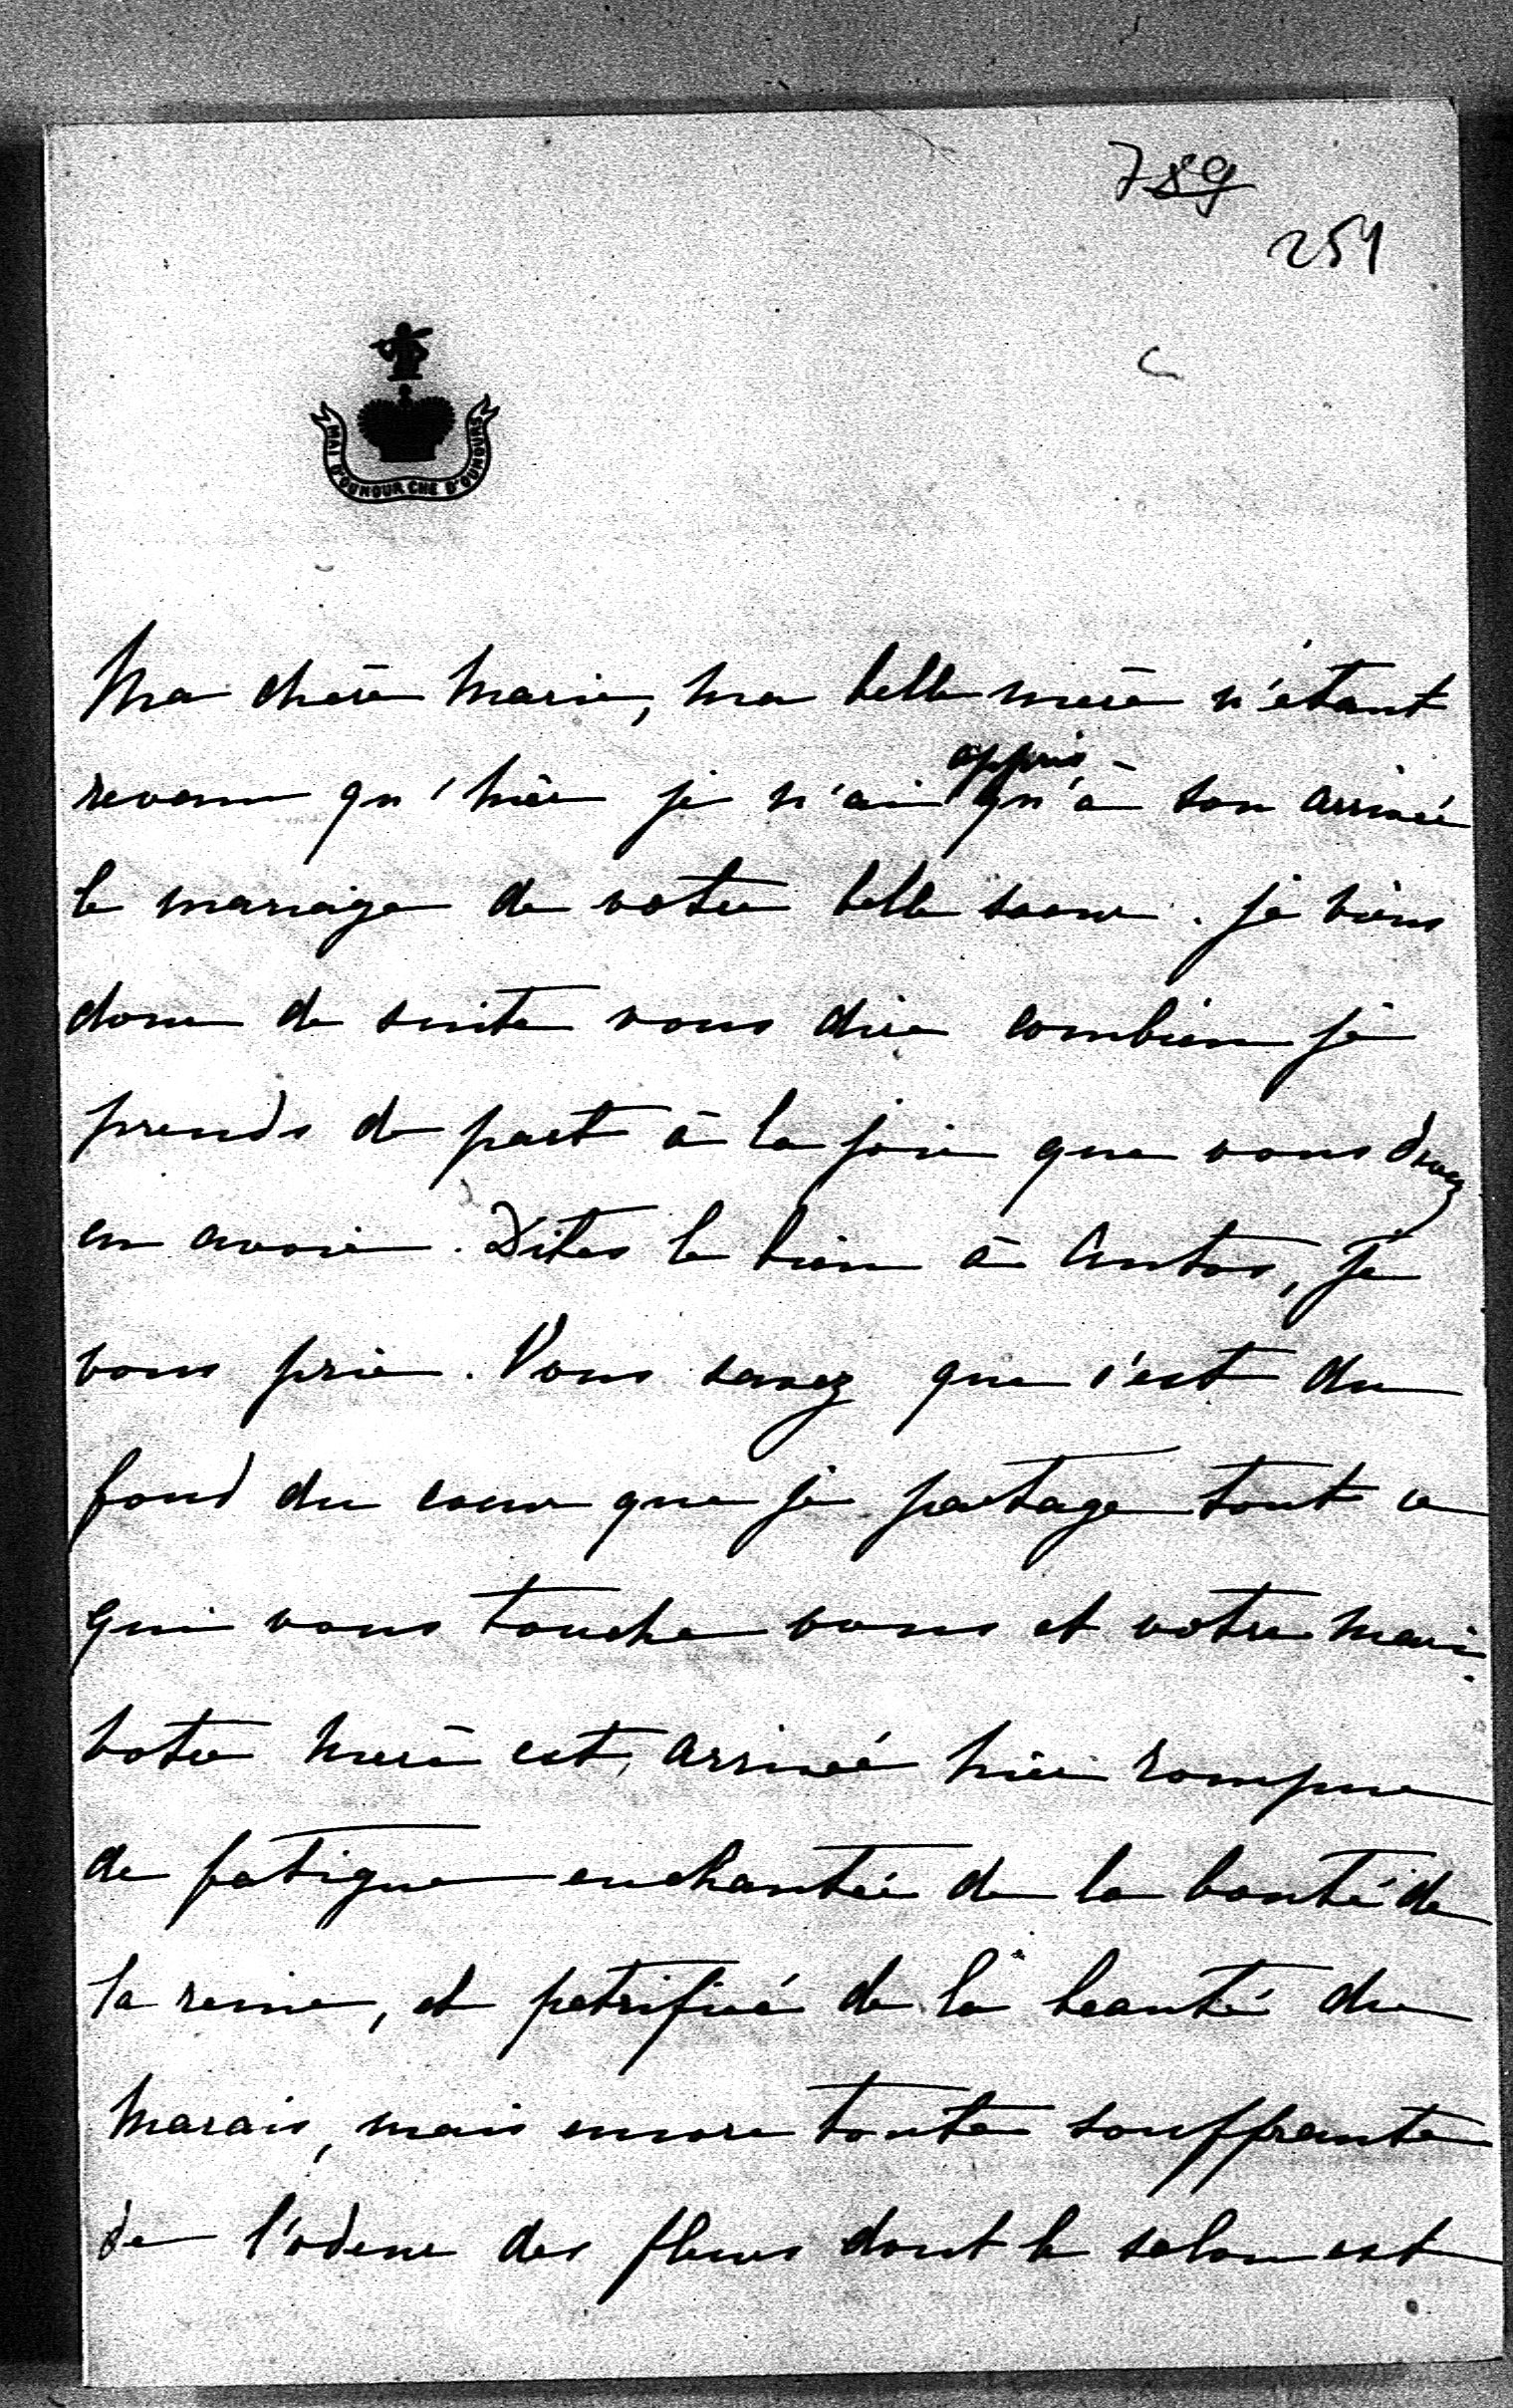 789
254
MAI D'OUNOUR CHE D'OUNOURS
Ma chère Marie, ma belle mère n'étant
revenue qu'hier je n'ai appris qu'à son arrivée
le mariage de votre belle soeur. je viens
donc de suite vous dire combien je
prends de part à la joie que vous devez
en avoir. Dites le bien à Antos, je
vous prie. Vous savez que c'est du
fond du coeur que je partage tout ce
qui vous touche vous et votre mari.
votre mère est arrivée hier rompue
de fatigue enchantée de la bonté de
la reine, et petrifiée de la beauté du
Marais, mais encore toute souffrante
de l'odeur des fleurs dont le salon est